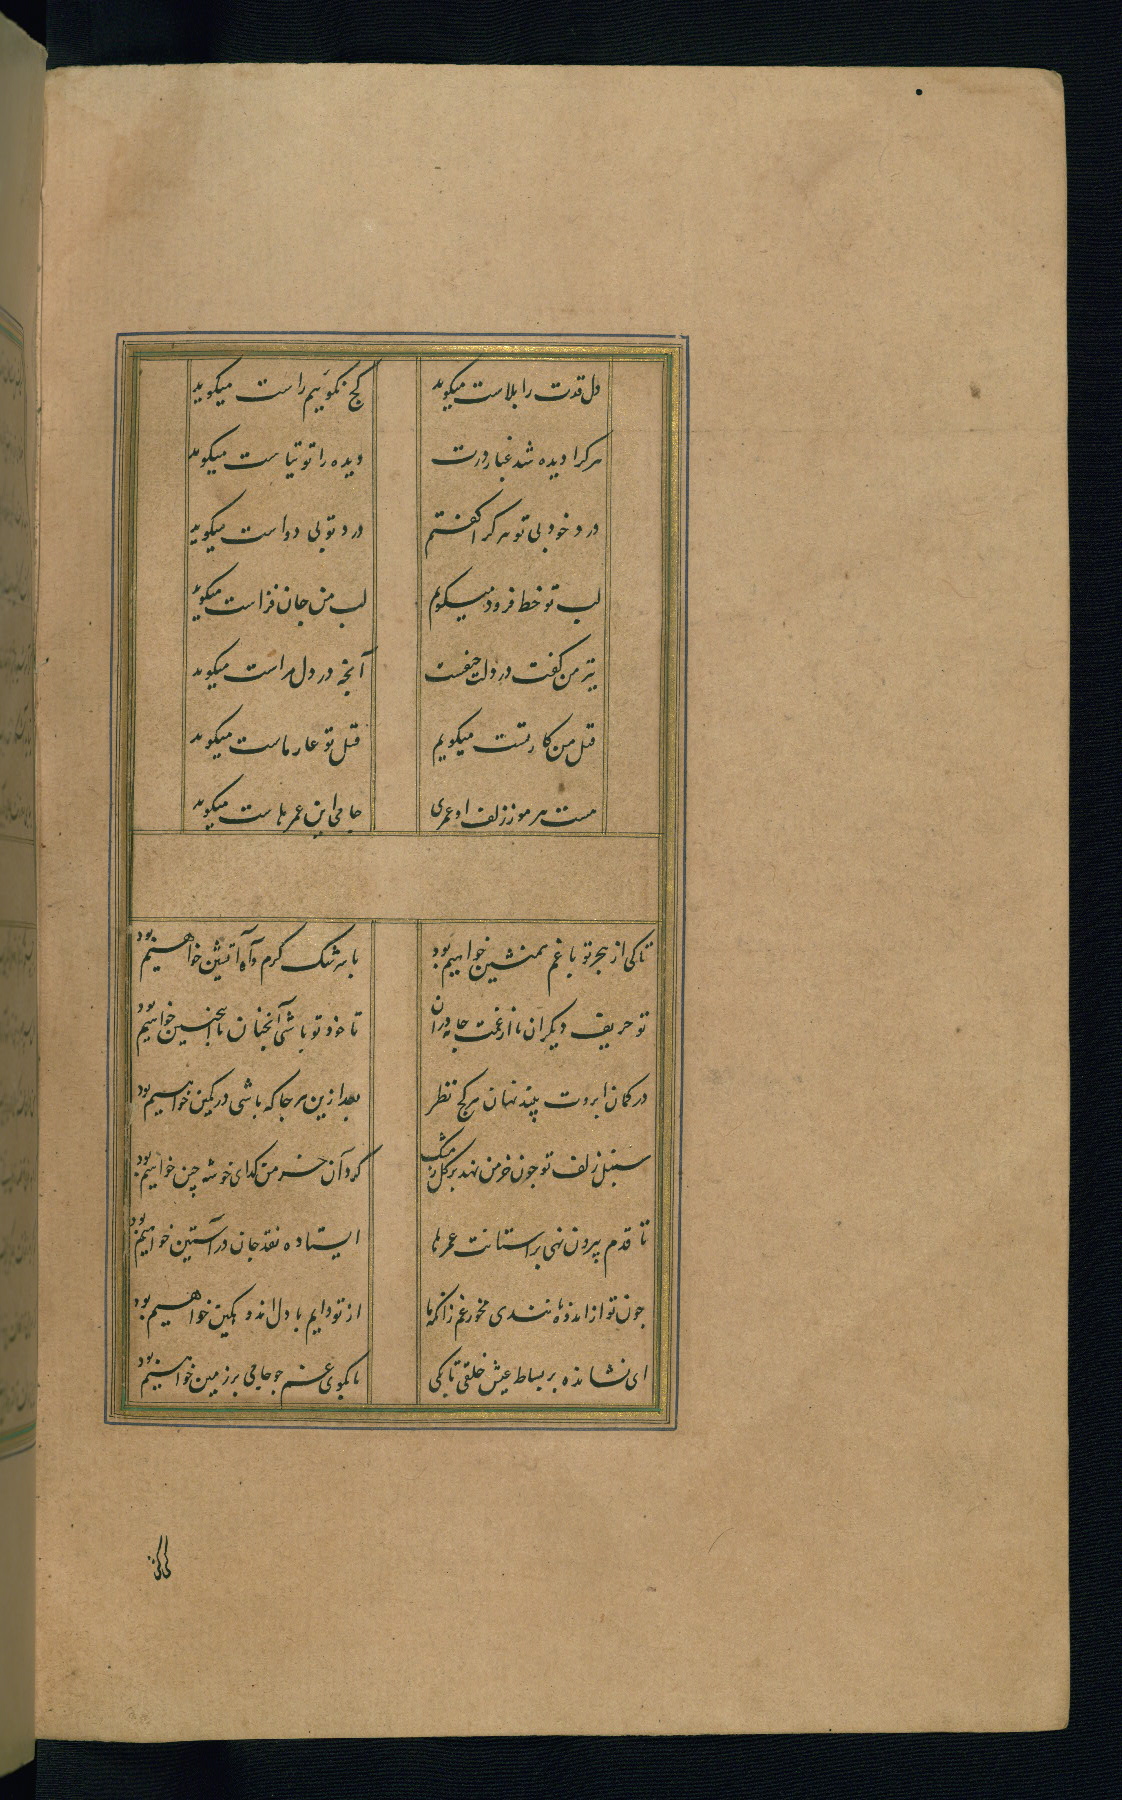 دل قدت را بلاست میگوید
کج نگوییم راست میگوید
هر کرا دیده شد غبار درت
دیده را توتیاست میگوید
درد خود بی تو هر کرا گفتم
درد تو بی دواست میگوید
لب تو خط فزود میگویم
لب من جان فزاست میگوید
تیر من گفت در دلت چیست
آنچه در دل مراست میگوید
قتل من کار تست میگویم
قتل تو عار ماست میگوید
هست هر مو ز زلف او عمری
جامی این عمرهاست میگوید
تا کی از هجر تو با غم همنشین خواهیم بود
با سرشک گرم و آه آتشین خواهیم بود
تو حریف دیگران ما از غمت جامه دران
تا خود تو باشی آنچنان ما اینچنین خواهیم بود
در کمان ابروت بیند نهان هر کج نظر
بعد ازین هر جا که باشی در کمین خواهیم بود
سنبل زلف تو چون خرمن نهد بر گل ز مشک
گرد آن خرمن گدای خوشه چین خواهیم بود
تا قدم بیرون نهی بر آستانت عمرها
ایستاده نقد جان در آستین خواهیم بود
چون تو از اندوه ما خرسندی مخور غم زانکه ما
از تو دایم با دل اندوهگین خواهیم بود
ای نشانده بر بساط عیش خلقی تا بکی
ما بکوی غم چو جامی بر زمین خواهیم بود